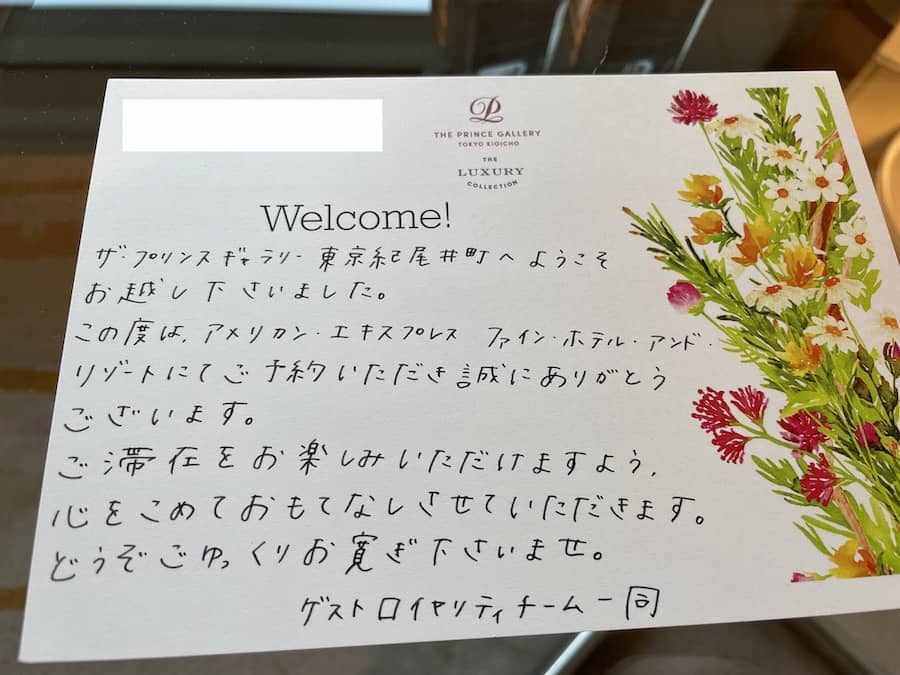 THE PRINCE GALLERY
TOKYO KIOICHO
THE
LUXURY
COLLECTION
Welcome!
ザ・プリンスギャラリー 東京紀尾井町へようこそ
お越し下さいました。
この度は、アメリカン・エキスプレス ファイン・ホテル・アンド・
リゾートにてご予約いただき誠にありがとう
ございます。
ご滞在をお楽しみいただけますよう、
心をこめておもてなしさせていただきます。
どうぞごゆっくりお寛ぎ下さいませ。
ゲストロイヤリティチーム一同